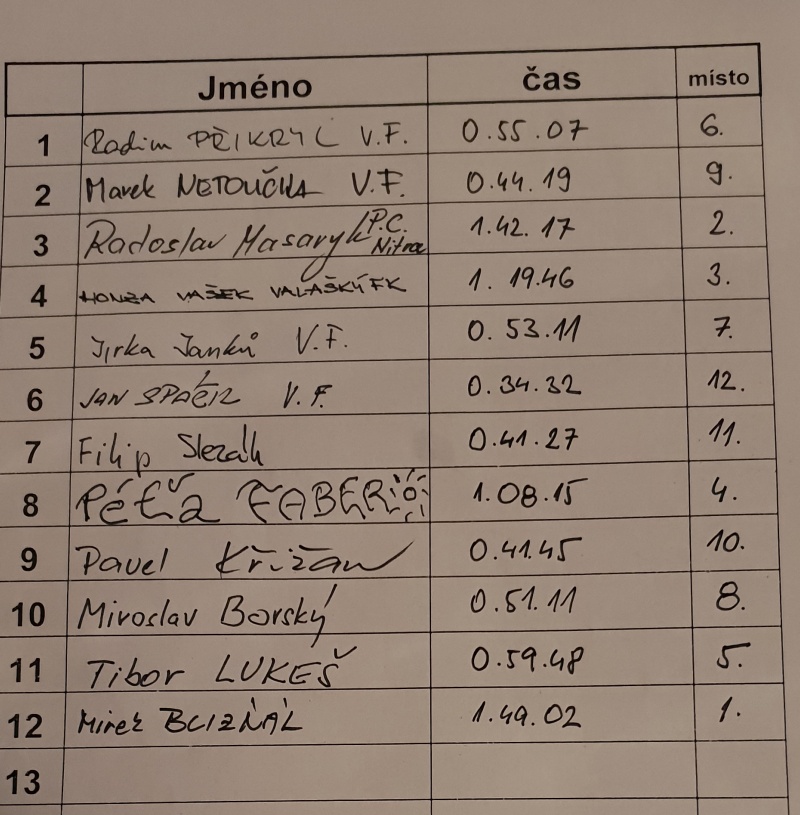 Jméno čas místo
1 Radim PŘIKRYL V.F. 0.55.07 6.
2 Marek NETOUČKA V.F. 0.44.19 9.
3 Radoslav Masaryk P.C. Nitra 1.42.17 2.
4 HONZA VAŠEK VALAŠKÝ FK 1.19.46 3.
5 Jirka Janků V.F. 0.53.11 7.
6 JAN V.F. 0.34.32 12.
7 Filip Slezák 0.41.27 11.
8 Péťa FABER 1.08.15 4.
9 Pavel Křižan 0.41.45 10.
10 Miroslav Borský 0.51.11 8.
11 Tibor LUKEŠ 0.59.48 5.
12 Mirek BLIZŇÁK 1.49.02 1.
13